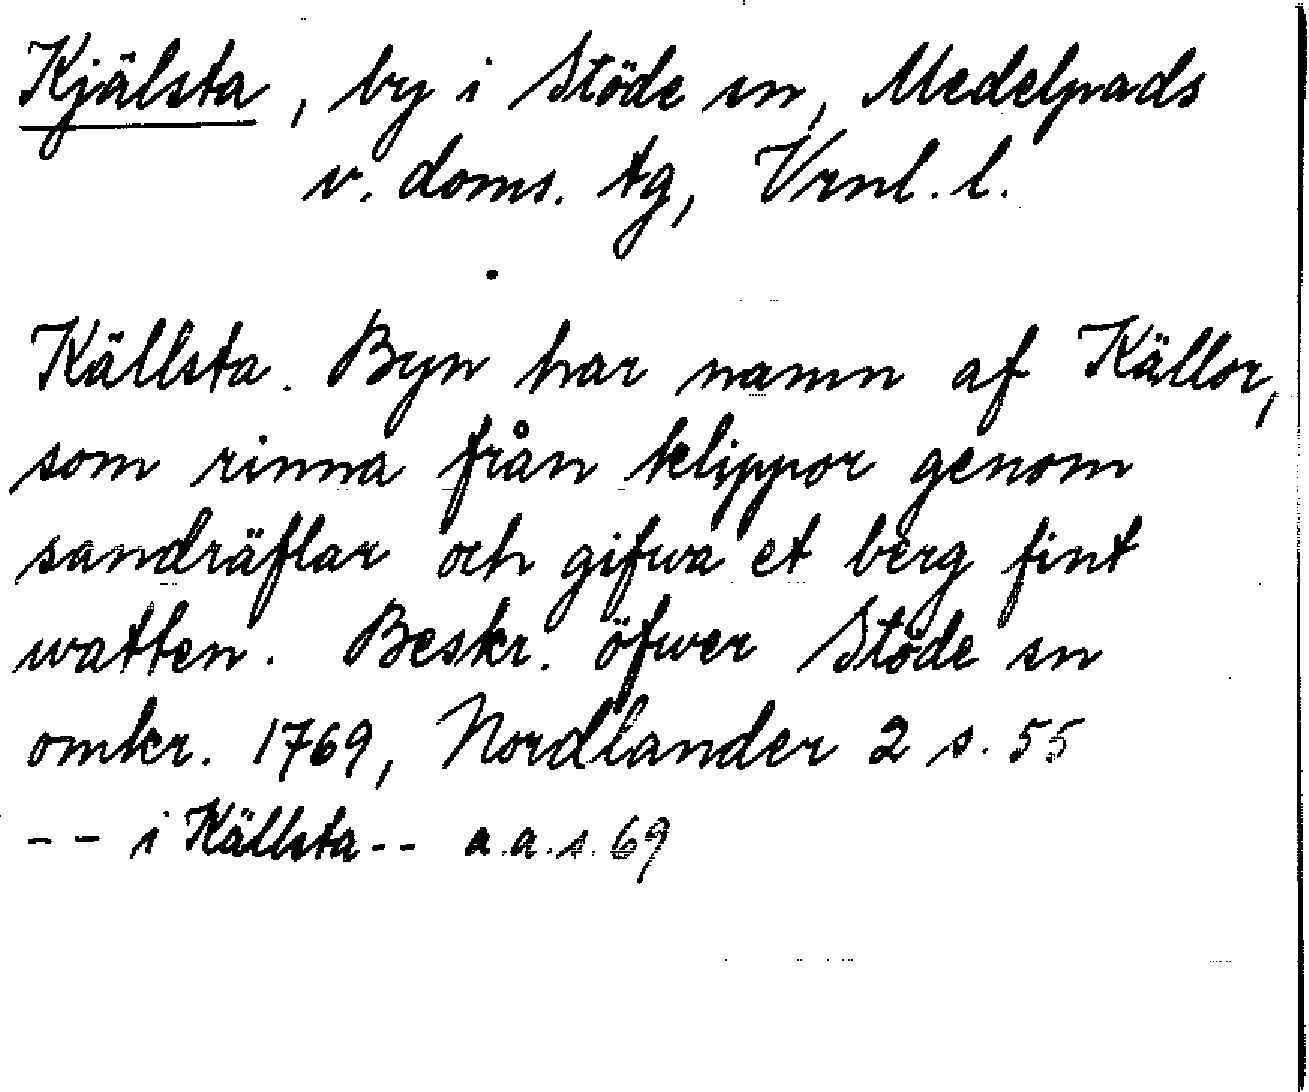 Kjälsta, by i Stöde sn, Medelpads
v. doms. tg, Vrnl. l.
Källsta. Byn har namn af Källor,
som rinna från klippor genom
sandräflar och gifwa et berg fint
watten. Beskr. öfwer Stöde sn
omkr. 1769, Nordlander 2 s. 55
-- i Källsta -- a.a.s. 69